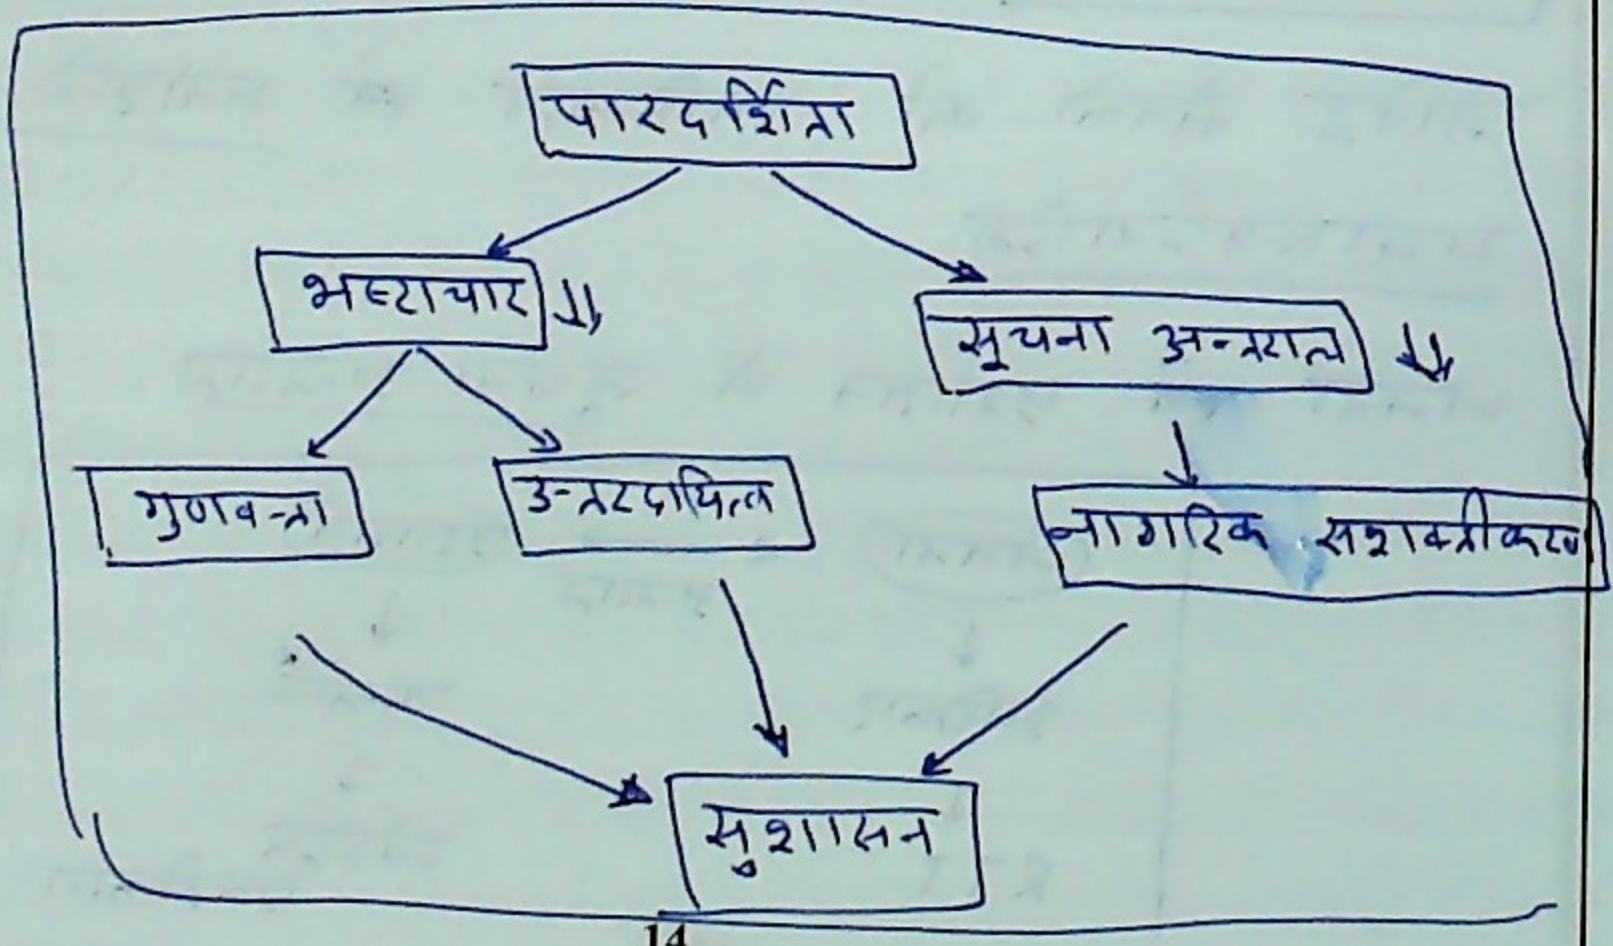 पारदर्शिता
भ्रष्टाचार ↓↓
सूचना अन्तराल ↓↓
गुणवत्ता
उत्तरदायित्व
नागरिक सशक्तीकरण
सुशासन
14